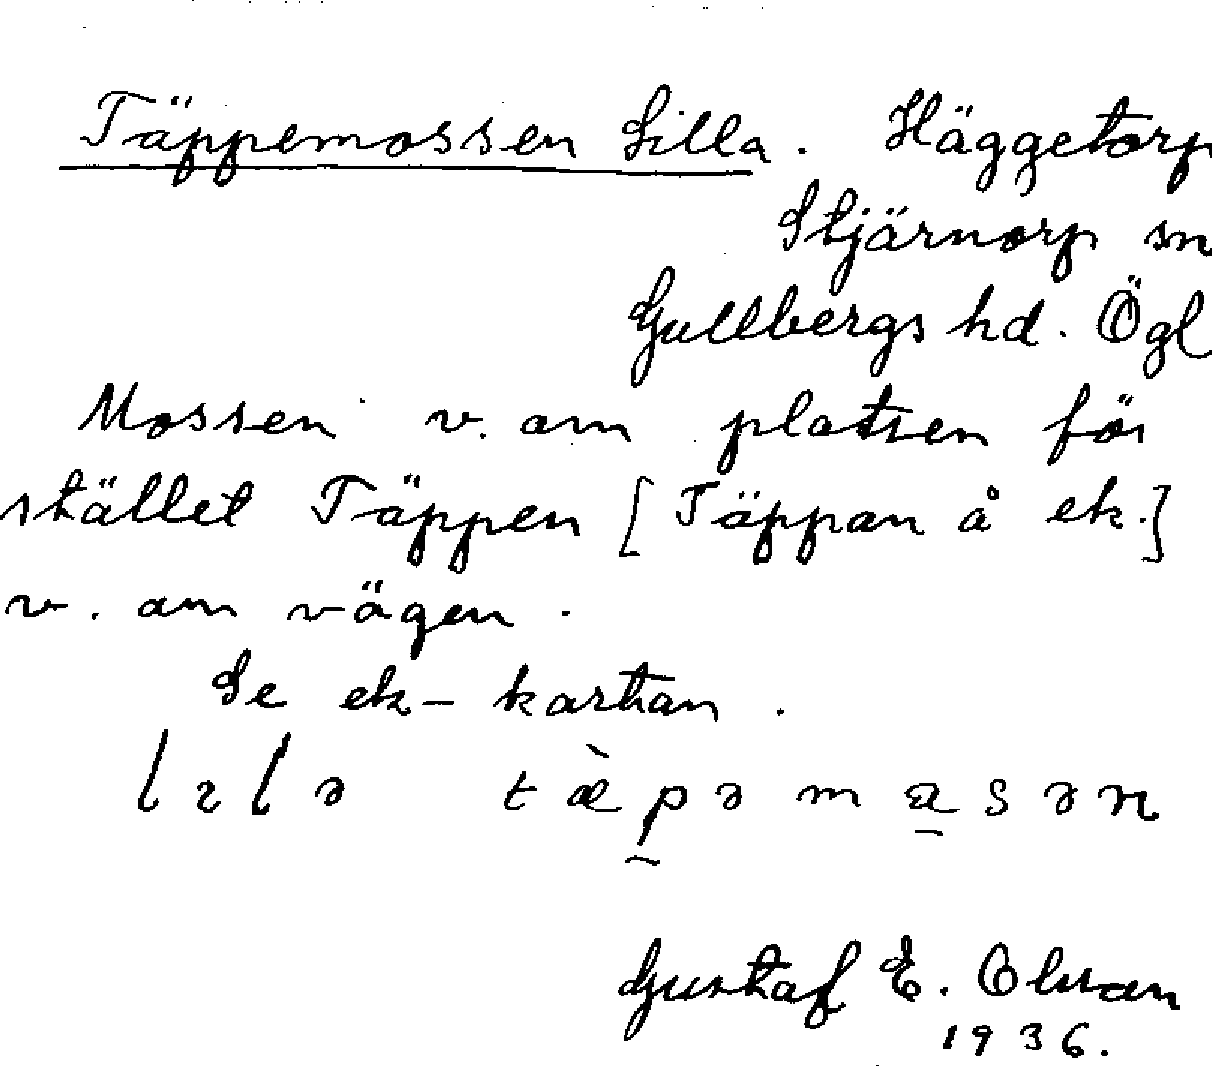 Täppemossen Lilla. Häggetorp
Stjärnorp sn
Gullbergs hd. Ögl
Mossen v. om platsen för
stället Täppen [Täppan å ek.]
v. om vägen.
Se ek-kartan.
lɩlə tæ̀pəmɑsən
Gustaf E. Olsson
1936.